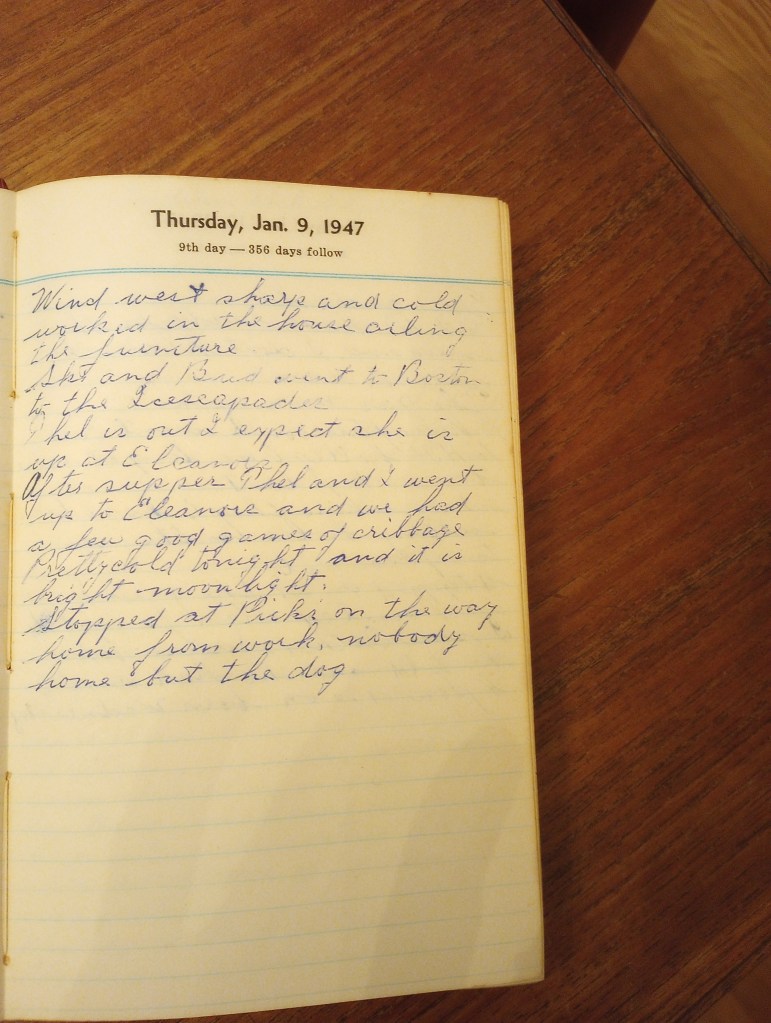 Thursday, Jan. 9, 1947
9th day — 356 days follow
Wind west sharp and cold
worked in the house oiling
the furniture
and went to Boston
to the Icescapades
Phel is out I expect she is
up at Eleanors
After supper Phel and I went
up to Eleanors and we had
a few good games of cribbage
Pretty cold tonight and it is
bright moonlight.
Stopped at on the way
home from work, nobody
home but the dog